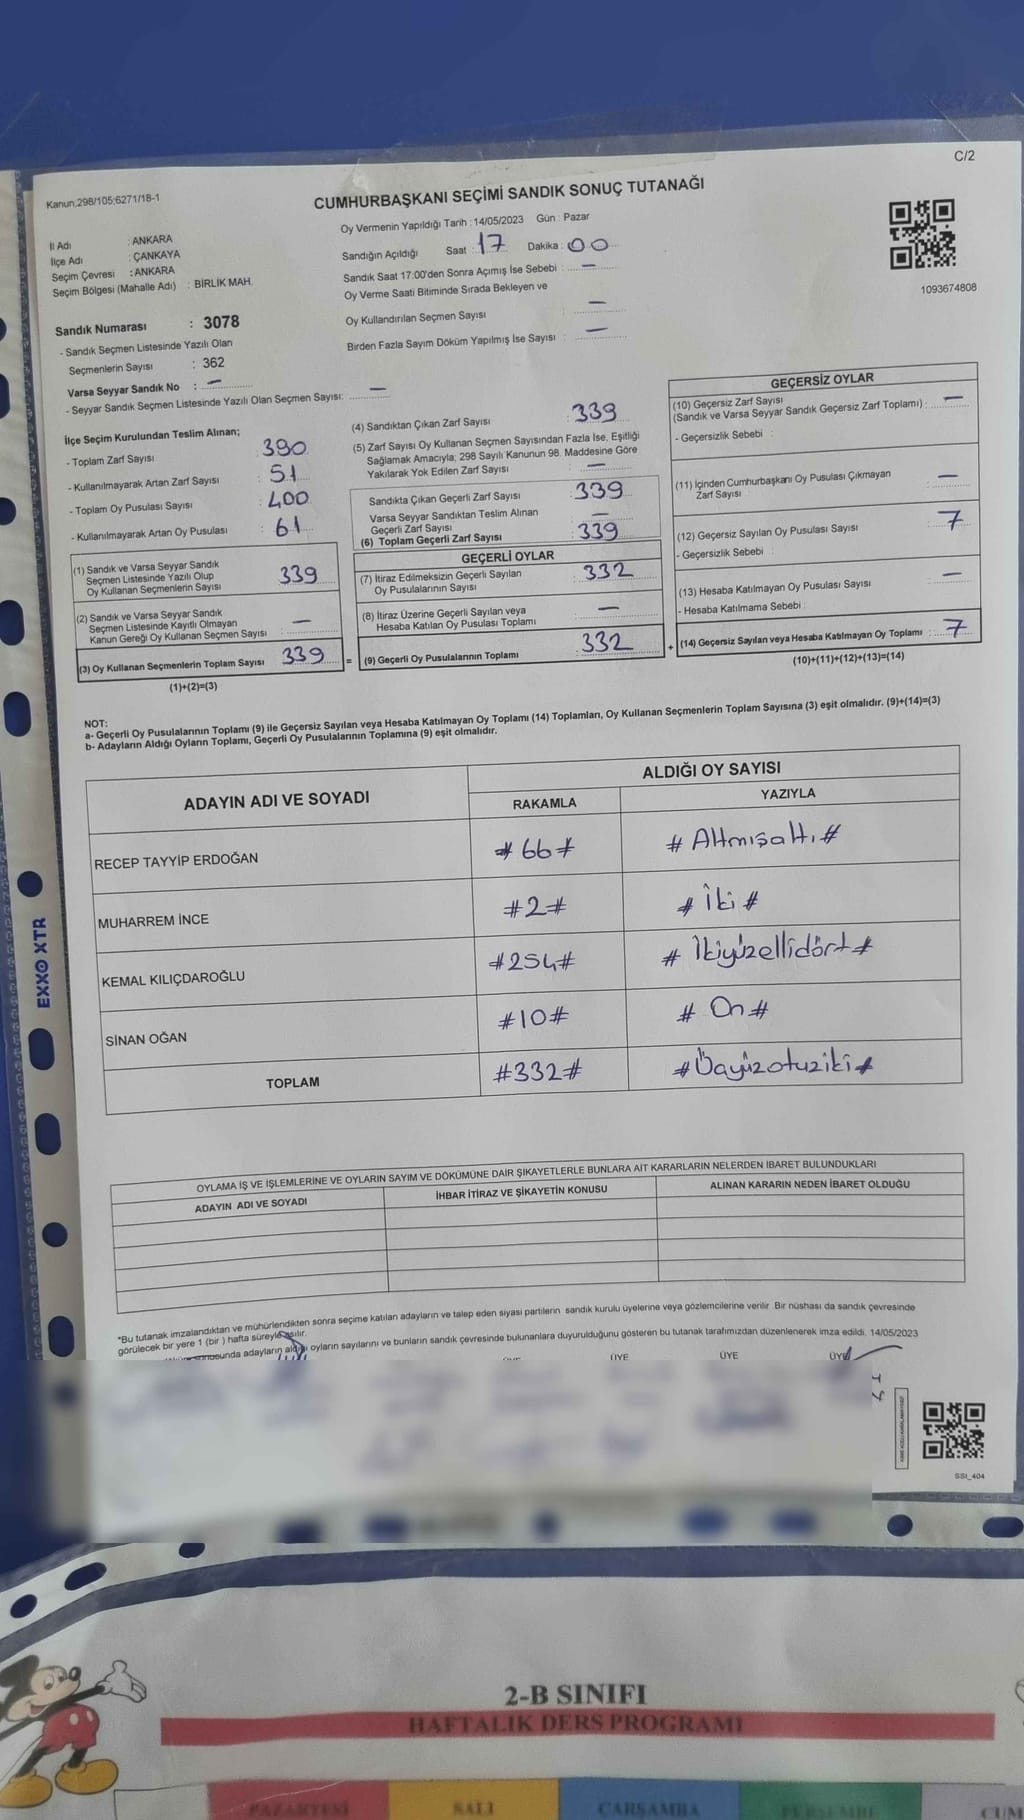 C/2
Kanun,298/105;6271/18-1
CUMHURBAŞKANI SEÇİMİ SANDIK SONUÇ TUTANAĞI
Oy Vermenin Yapıldığı Tarih : 14/05/2023 Gün : Pazar
İl Adı : ANKARA
İlçe Adı : ÇANKAYA
Seçim Çevresi : ANKARA
Seçim Bölgesi (Mahalle Adı) : BİRLİK MAH.
Sandığın Açıldığı Saat : 17 Dakika : 00
Sandık Saat 17:00'den Sonra Açımış İse Sebebi : —
Oy Verme Saati Bitiminde Sırada Bekleyen ve
Oy Kullandırılan Seçmen Sayısı : —
Birden Fazla Sayım Döküm Yapılmış İse Sayısı : —
1093674808
Sandık Numarası : 3078
- Sandık Seçmen Listesinde Yazılı Olan
Seçmenlerin Sayısı : 362
Varsa Seyyar Sandık No : —
- Seyyar Sandık Seçmen Listesinde Yazılı Olan Seçmen Sayısı: —
İlçe Seçim Kurulundan Teslim Alınan;
- Toplam Zarf Sayısı : 390
- Kullanılmayarak Artan Zarf Sayısı : 51
- Toplam Oy Pusulası Sayısı : 400
- Kullanılmayarak Artan Oy Pusulası : 61
(1) Sandık ve Varsa Seyyar Sandık
Seçmen Listesinde Yazılı Olup
Oy Kullanan Seçmenlerin Sayısı : 339
(2) Sandık ve Varsa Seyyar Sandık
Seçmen Listesinde Kayıtlı Olmayan
Kanun Gereği Oy Kullanan Seçmen Sayısı : —
(3) Oy Kullanan Seçmenlerin Toplam Sayısı : 339
(1)+(2)=(3)
(4) Sandıktan Çıkan Zarf Sayısı : 339
(5) Zarf Sayısı Oy Kullanan Seçmen Sayısından Fazla İse, Eşitliği
Sağlamak Amacıyla; 298 Sayılı Kanunun 98. Maddesine Göre
Yakılarak Yok Edilen Zarf Sayısı : —
Sandıkta Çıkan Geçerli Zarf Sayısı : 339
Varsa Seyyar Sandıktan Teslim Alınan
Geçerli Zarf Sayısı : —
(6) Toplam Geçerli Zarf Sayısı : 339
GEÇERLİ OYLAR
(7) İtiraz Edilmeksizin Geçerli Sayılan
Oy Pusulalarının Sayısı : 332
(8) İtiraz Üzerine Geçerli Sayılan veya
Hesaba Katılan Oy Pusulası Toplamı : —
= (9) Geçerli Oy Pusulalarının Toplamı : 332
GEÇERSİZ OYLAR
(10) Geçersiz Zarf Sayısı
(Sandık ve Varsa Seyyar Sandık Geçersiz Zarf Toplamı) : —
- Geçersizlik Sebebi :
(11) İçinden Cumhurbaşkanı Oy Pusulası Çıkmayan
Zarf Sayısı : —
(12) Geçersiz Sayılan Oy Pusulası Sayısı : 7
- Geçersizlik Sebebi :
(13) Hesaba Katılmayan Oy Pusulası Sayısı : —
- Hesaba Katılmama Sebebi :
+ (14) Geçersiz Sayılan veya Hesaba Katılmayan Oy Toplamı : 7
(10)+(11)+(12)+(13)=(14)
NOT:
a- Geçerli Oy Pusulalarının Toplamı (9) ile Geçersiz Sayılan veya Hesaba Katılmayan Oy Toplamı (14) Toplamları, Oy Kullanan Seçmenlerin Toplam Sayısına (3) eşit olmalıdır. (9)+(14)=(3)
b- Adayların Aldığı Oyların Toplamı, Geçerli Oy Pusulalarının Toplamına (9) eşit olmalıdır.
ADAYIN ADI VE SOYADI
ALDIĞI OY SAYISI
RAKAMLA YAZIYLA
RECEP TAYYİP ERDOĞAN #66# #Altmışaltı#
MUHARREM İNCE #2# #İki#
KEMAL KILIÇDAROĞLU #254# #İkiyüzellidört#
SİNAN OĞAN #10# #On#
TOPLAM #332# #Üçyüzotuziki#
OYLAMA İŞ VE İŞLEMLERİNE VE OYLARIN SAYIM VE DÖKÜMÜNE DAİR ŞİKAYETLERLE BUNLARA AİT KARARLARIN NELERDEN İBARET BULUNDUKLARI
ADAYIN ADI VE SOYADI İHBAR İTİRAZ VE ŞİKAYETİN KONUSU ALINAN KARARIN NEDEN İBARET OLDUĞU
*Bu tutanak imzalandıktan ve mühürlendikten sonra seçime katılan adayların ve talep eden siyasi partilerin sandık kurulu üyelerine veya gözlemcilerine verilir .Bir nüshası da sandık çevresinde
görülecek bir yere 1 (bir ) hafta süreyle asılır.
adayların aldığı oyların sayılarını ve bunların sandık çevresinde bulunanlara duyurulduğunu gösteren bu tutanak tarafımızdan düzenlenerek imza edildi. 14/05/2023
ÜYE ÜYE ÜYE ÜYE
SSI_404
EXXO XTR
2-B SINIFI
HAFTALIK DERS PROGRAMI
PAZARTESİ SALI ÇARŞAMBA PERŞEMBE CUM